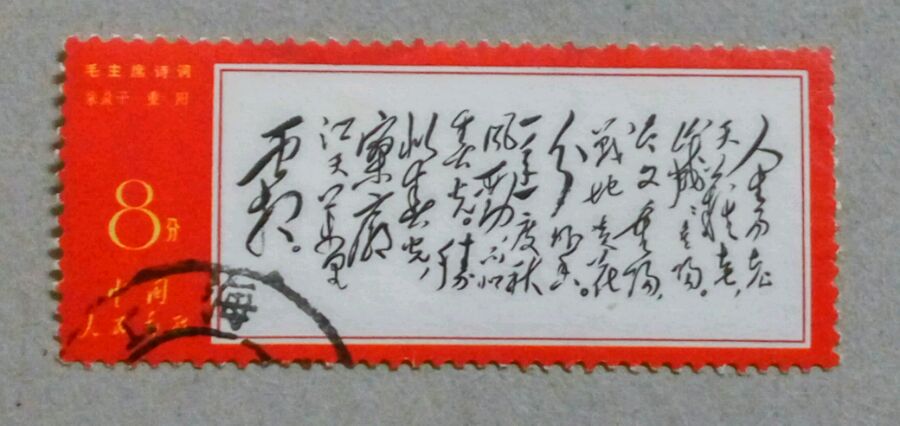 毛主席诗词
采桑子 重阳
8分
中国
人民邮政
人生易老
天难老,
岁岁重阳。
今又重阳,
战地黄花
分外香。
一年一度秋
风劲不似
春光。胜
似春光,
寥廓
江天万里
霜。